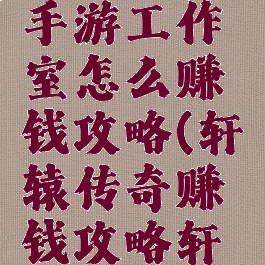 手游工作
室怎么赚
钱攻略(轩
辕传奇赚
钱攻略轩